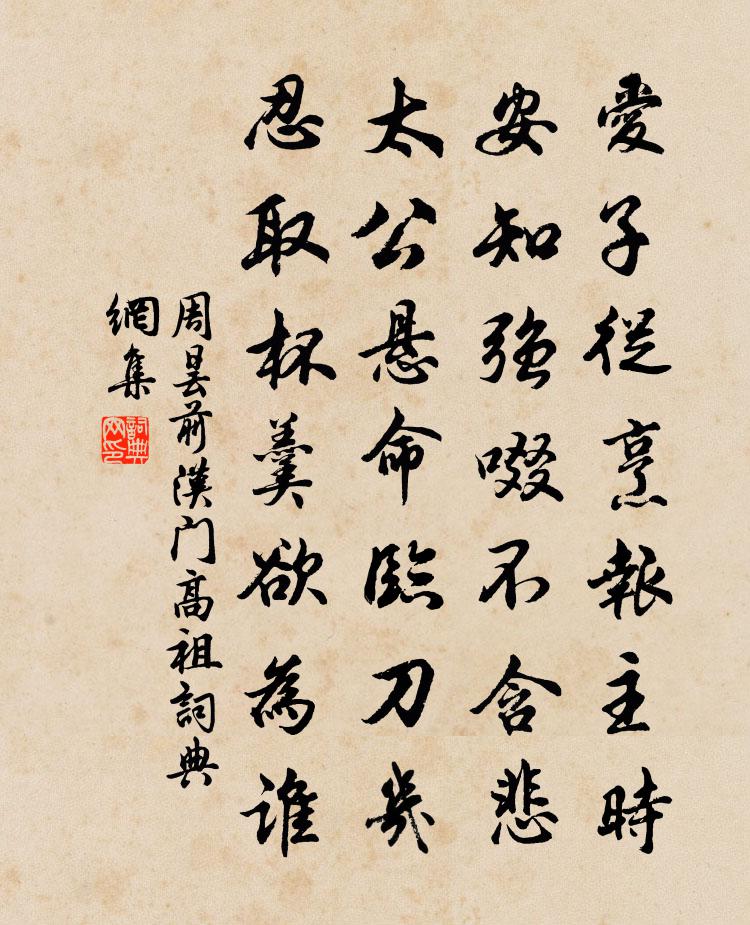 愛子從烹報主時
安知強啜不含悲
太公懸命臨刀几
忍取杯羹欲為誰
周曇前漢門高祖詞典
網集
詞典網印